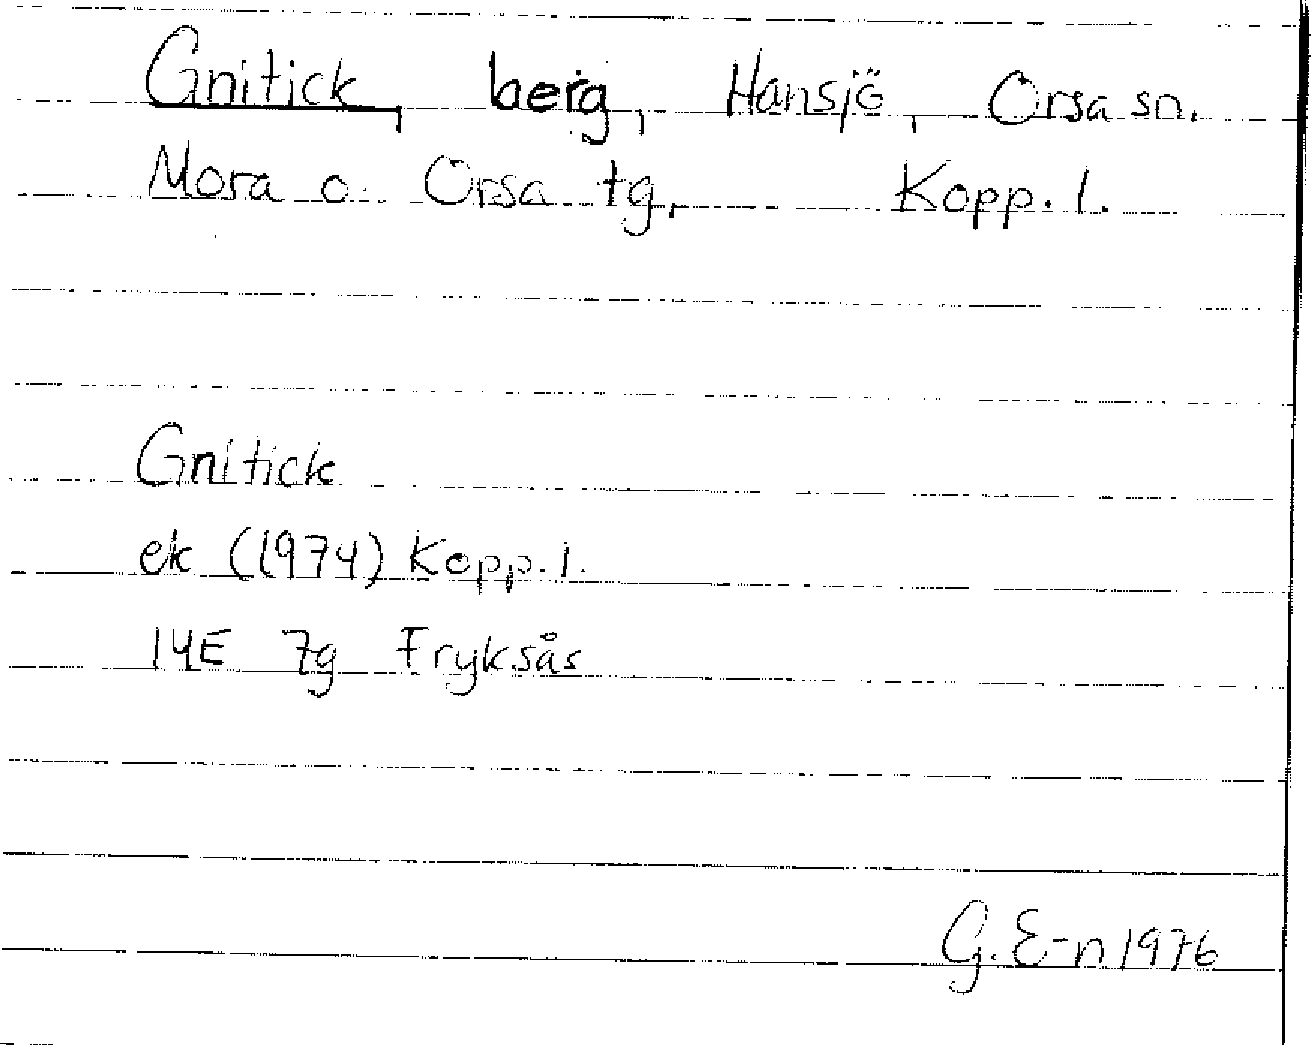 Gnitick, berg, Hansjö, Orsa sn.
Mora o. Orsa tg. Kopp. l.
Gnitick
ek (1974) Kopp. l.
14E 7g Fryksås
G. E-n 1976